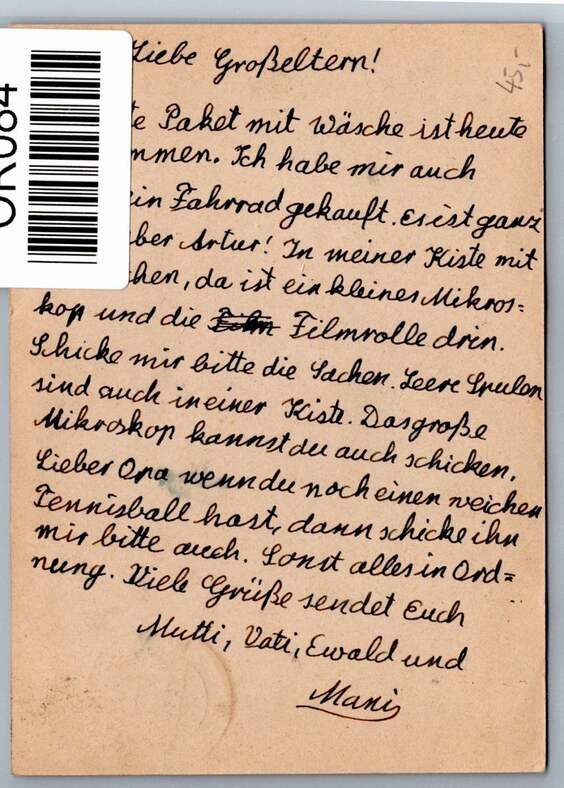 Liebe Großeltern!
45,-
te Paket mit Wäsche ist heute
mmen. Ich habe mir auch
in Fahrrad gekauft. Es ist ganz
ber Artur! In meiner Kiste mit
chen, da ist ein kleines Mikros=
kop und die Filmrolle drin.
Schicke mir bitte die Sachen. Leere Spulen
sind auch in einer Kiste. Das große
Mikroskop kannst du auch schicken.
Lieber Opa wenn du noch einen weichen
Tennisball hast, dann schicke ihn
mir bitte auch. Sonst alles in Ord=
nung. Viele Grüße sendet Euch
Mutti, Vati, Ewald und
Mani